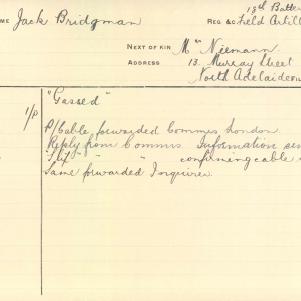 ME Jack Bridgman
13th Batter
REG &C Field Artill
NEXT OF KIN Mrs Niemann
ADDRESS 13 Murray Street
North Adelaide
"Gassed"
1/P P/Cable forwarded Commrs London
Reply from Commrs Information sen
" " confirming cable
Same forwarded Inquirer